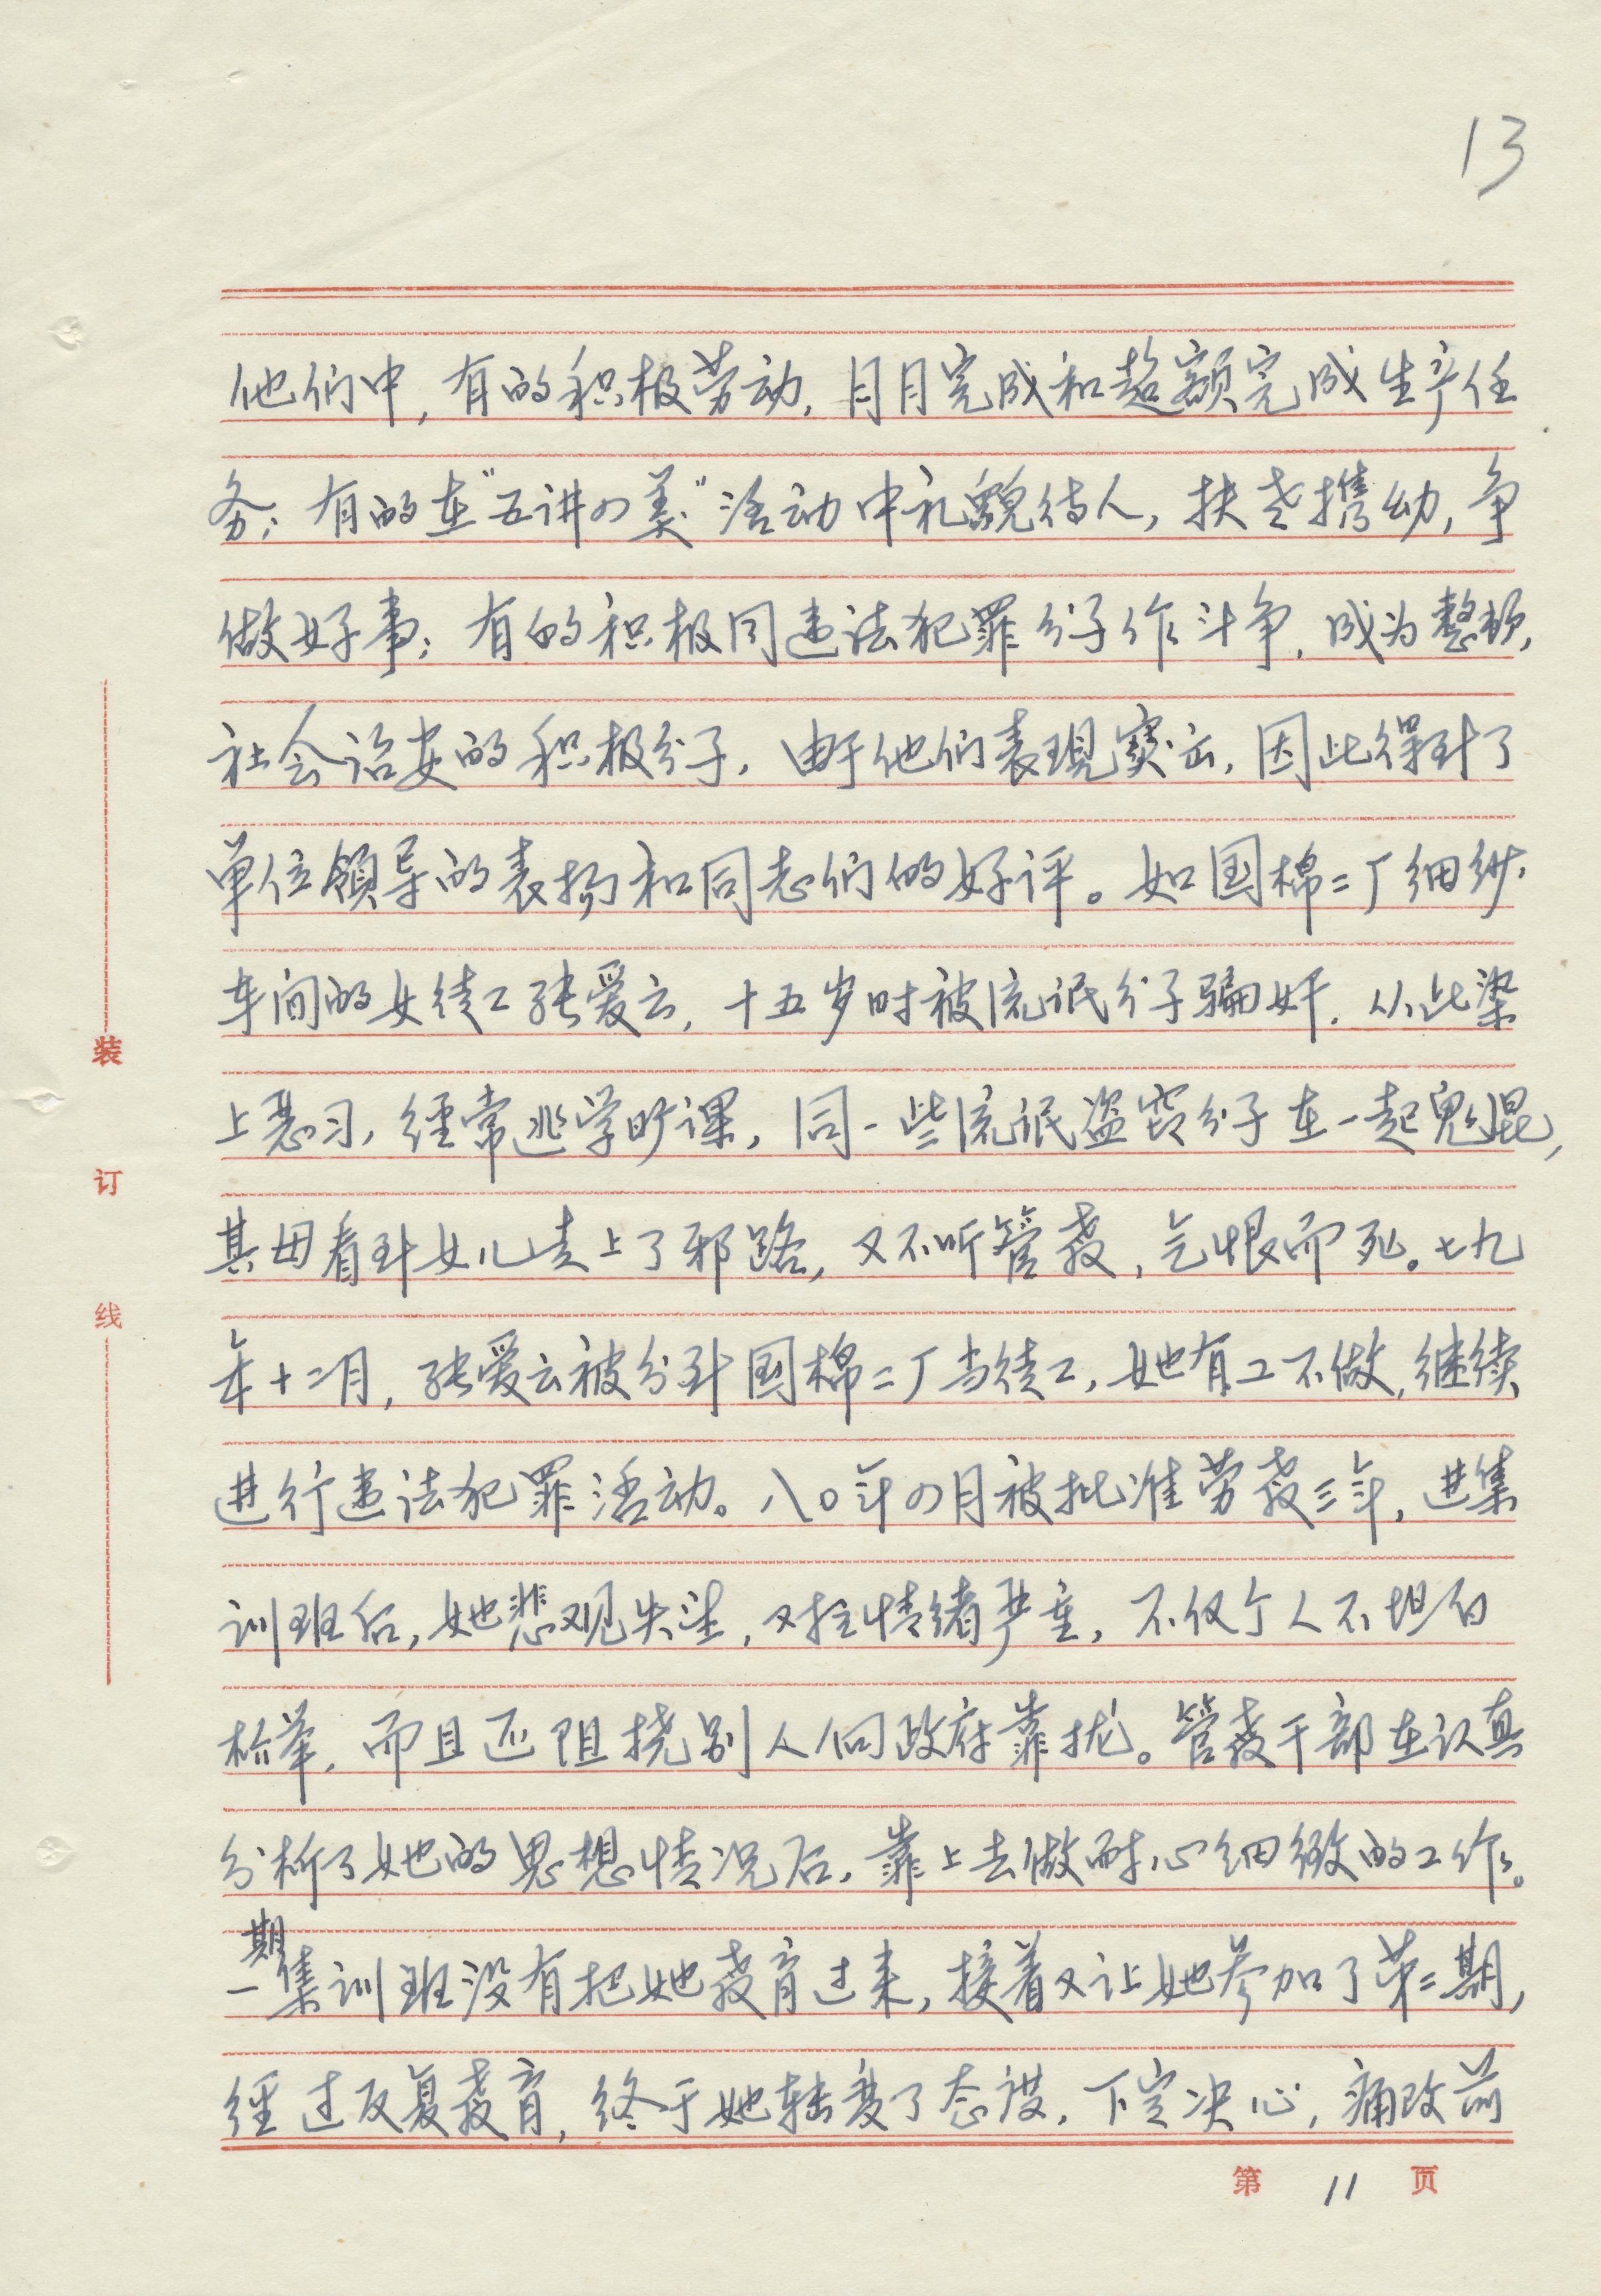 13
他们中，有的积极劳动，月月完成和超额完成生产任
务；有的在"五讲四美"活动中礼貌待人，扶老携幼，争
做好事；有的积极同违法犯罪分子作斗争，成为整顿
社会治安的积极分子，由于他们表现突出，因此得到了
单位领导的表扬和同志们的好评。如国棉二厂细纱
车间的女徒工张爱云，十五岁时被流氓分子骗奸，从此染
上恶习，经常逃学旷课，同一些流氓盗窃分子在一起鬼混，
其母看到女儿走上了邪路，又不听管教，气恨而死。七九
年十二月，张爱云被分到国棉二厂当徒工，她有工不做，继续
进行违法犯罪活动。八〇年四月被批准劳教三年，进集
训班后，她悲观失望，对抗情绪严重，不仅个人不坦白
检举，而且还阻挠别人向政府靠拢。管教干部在认真
分析了她的思想情况后，靠上去做耐心细微的工作。
一期集训班没有把她教育过来，接着又让她参加了第二期，
经过反复教育，终于她转变了态度，下定决心，痛改前
装
订
线
第 11 页